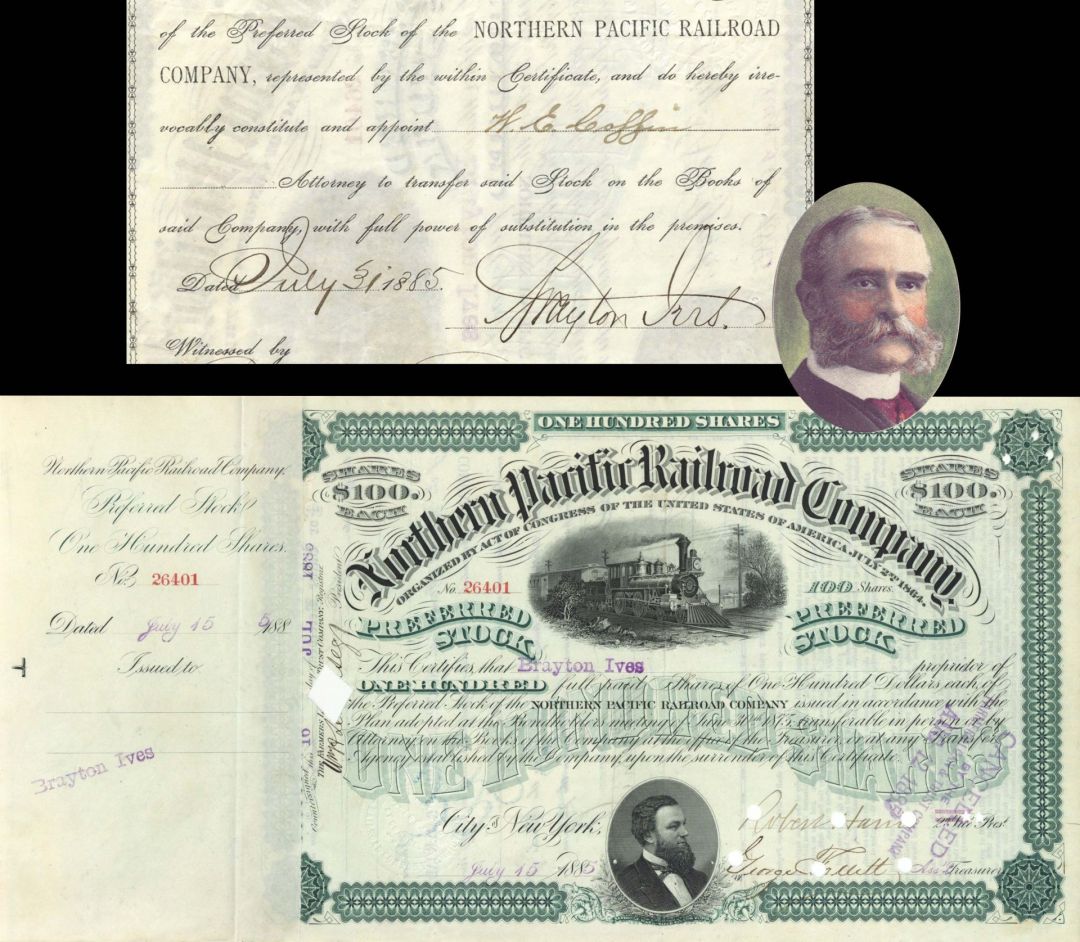 of the Preferred Stock of the NORTHERN PACIFIC RAILROAD
COMPANY, represented by the within Certificate, and do hereby irre-
vocably constitute and appoint W. E. Coffin
Attorney to transfer said Stock on the Books of
said Company, with full power of substitution in the premises.
Dated July 31 1885. Brayton Ives.
Witnessed by
Northern Pacific Railroad Company.
Preferred Stock
One Hundred Shares.
No. 26401
Dated July 15 1885
Issued to
Brayton Ives
ONE HUNDRED SHARES
SHARES $100. EACH
SHARES $100. EACH
Northern Pacific Railroad Company.
ORGANIZED BY ACT OF CONGRESS OF THE UNITED STATES OF AMERICA JULY 2D 1864.
No. 26401
100 Shares.
PREFERRED STOCK
PREFERRED STOCK
This Certifies that Brayton Ives proprietor of
ONE HUNDRED full paid Shares of One Hundred Dollars each, of
the Preferred Stock of the NORTHERN PACIFIC RAILROAD COMPANY issued in accordance with the
Plan adopted at the Bondholders meeting, June 30th 1875, transferable in person or by
Attorney on the Books of the Company at the office of the Treasurer or at any Transfer
Agency established by the Company, upon the surrender of this Certificate.
ONE HUNDRED SHARES
City of New York,
July 15 1885
Robert Harris 2d Vice Prest.
George Asst. Treasurer
JUL 1885
16
CANCELLED
NORTHERN PACIFIC RAILROAD COMPANY
PREFERRED STOCK